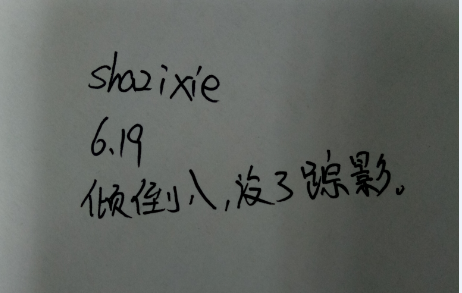 shazixie
6.19
倾倒八,没了踪影。